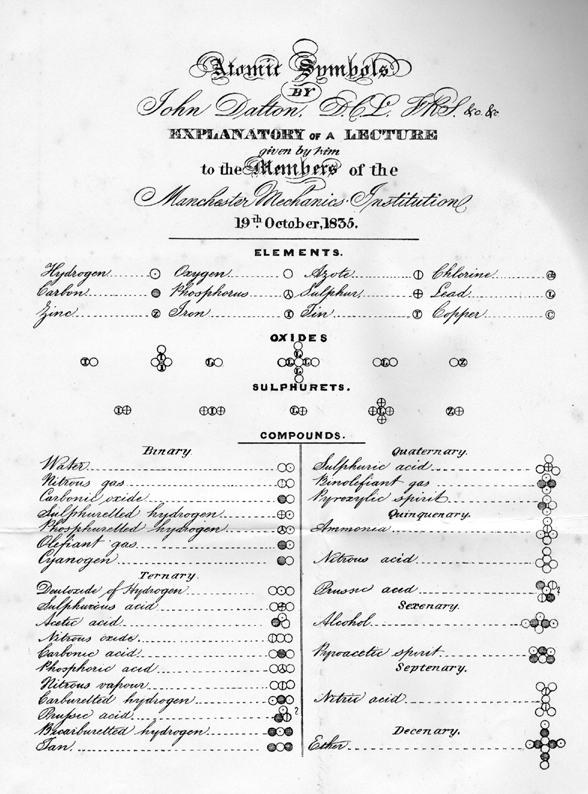 Atomic Symbols
BY
John Dalton, D.C.L. F.R.S. &c. &c.
EXPLANATORY OF A LECTURE
given by him
to the Members of the
Manchester Mechanics' Institution
19th. October, 1835.
ELEMENTS.
Hydrogen Oxygen Azote Chlorine
Carbon Phosphorus Sulphur Lead
Zinc Iron Tin Copper
OXIDES
SULPHURETS.
COMPOUNDS.
Binary.
Water
Nitrous gas
Carbonic oxide
Sulphuretted hydrogen
Phosphuretted hydrogen
Olefiant gas
Cyanogen
Ternary.
Deutoxide of Hydrogen
Sulphurous acid
Acetic acid
Nitrous oxide
Carbonic acid
Phosphoric acid
Nitrous vapour
Carburetted hydrogen
Prussic acid ?
Bicarburetted hydrogen
Tan
Quaternary.
Sulphuric acid
Binolefiant gas
Pyroxylic spirit
Quinquenary.
Ammonia
Nitrous acid
Prussic acid ?
Sexenary.
Alcohol
Pyroacetic spirit
Septenary.
Nitric acid
Decenary.
Ether